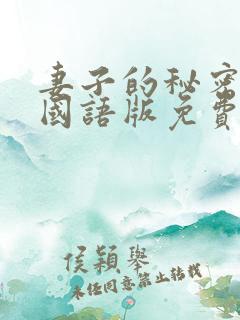 妻子的秘密
國語版免費
侯穎舉
未经同意禁止转载